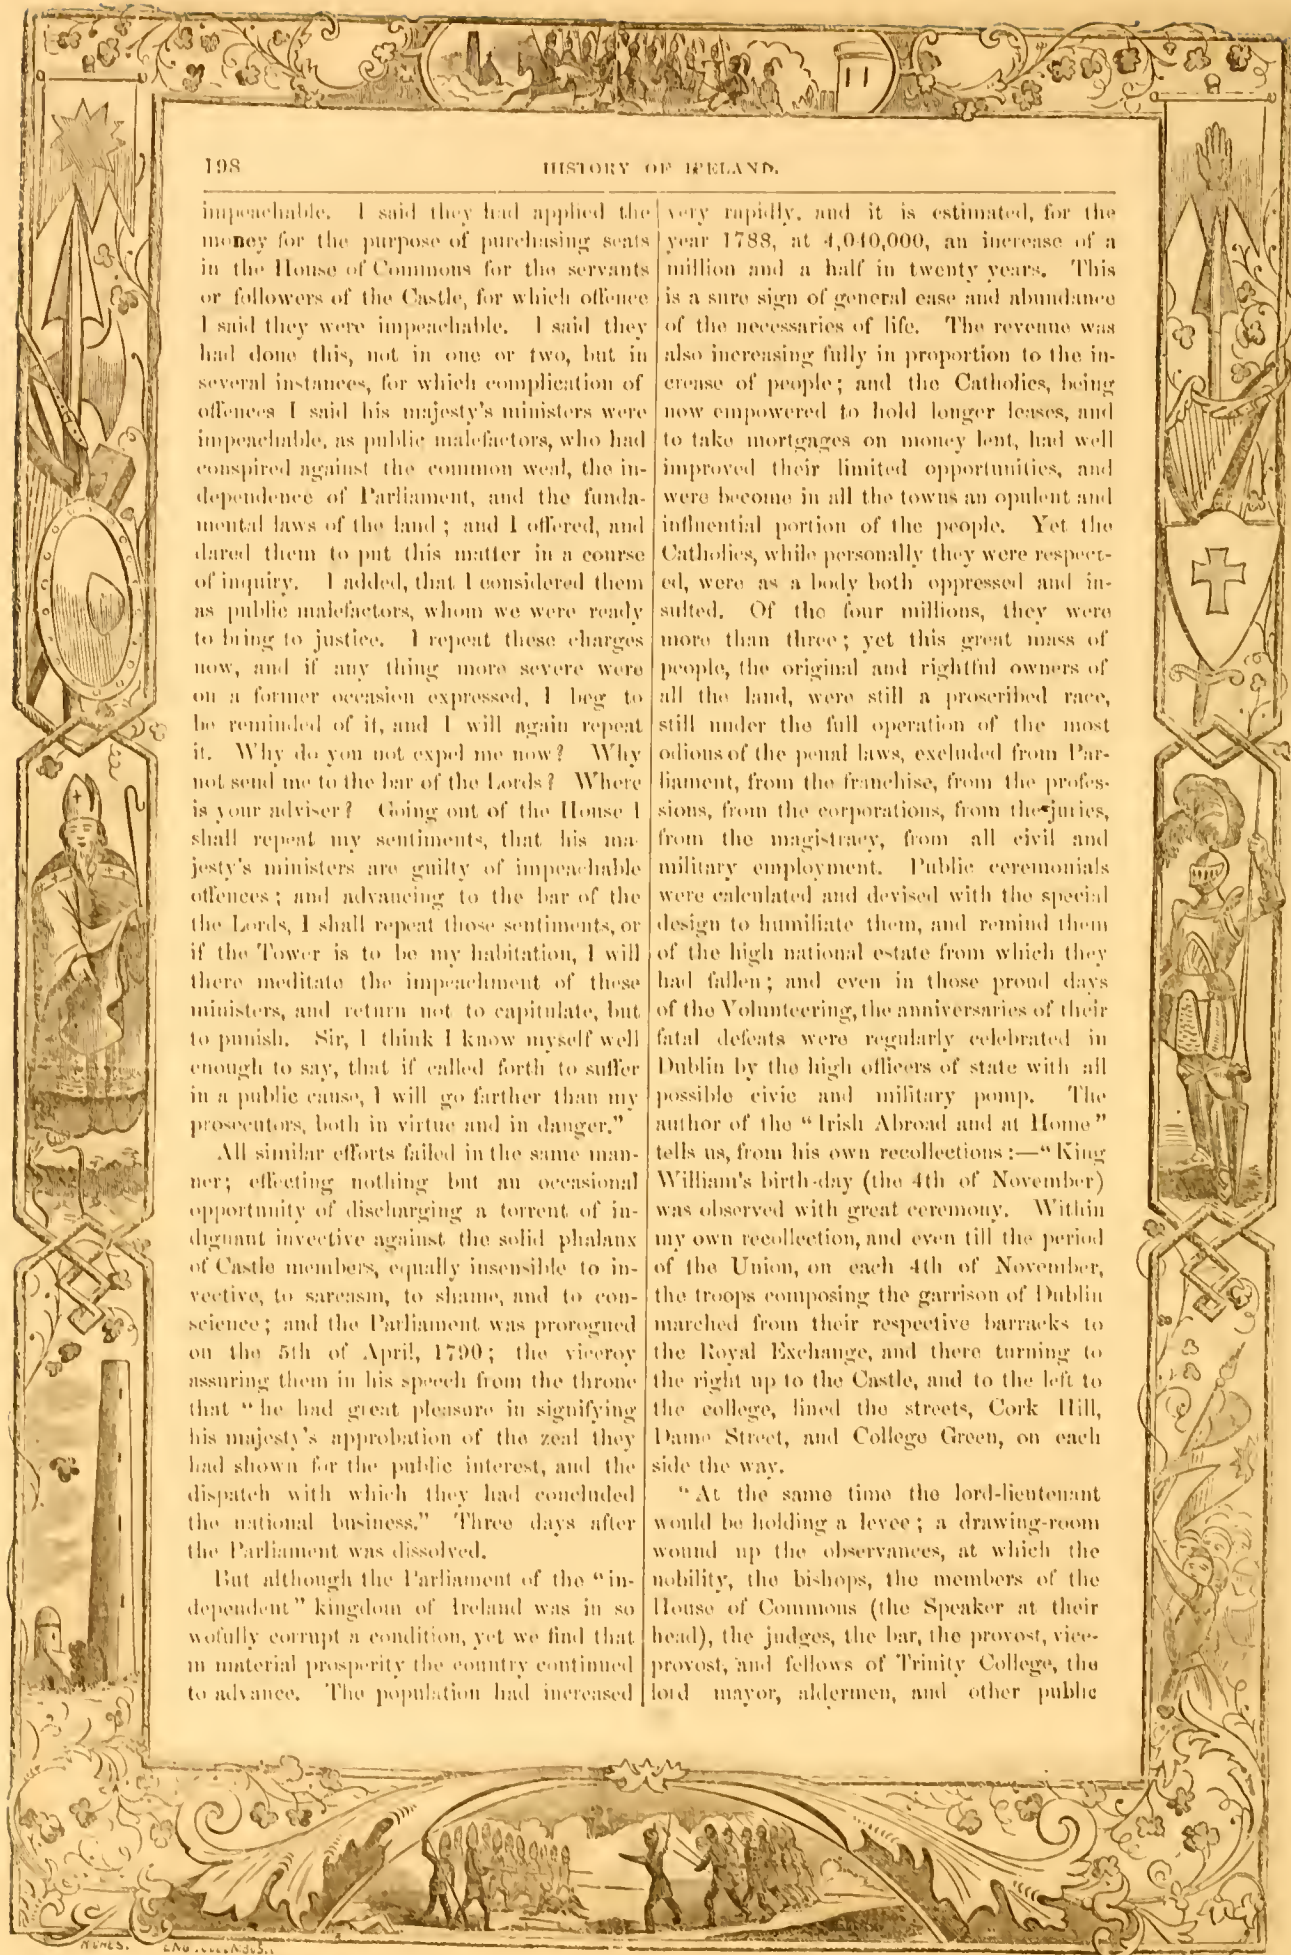 198
HISTORY OF IRELAND.
impeachable. I said they had applied the
money for the purpose of purchasing seats
in the House of Commons for the servants
or followers of the Castle, for which offence
I said they were impeachable. I said they
had done this, not in one or two, but in
several instances, for which complication of
offences I said his majesty's ministers were
impeachable, as public malefactors, who had
conspired against the common weal, the in-
dependence of Parliament, and the funda-
mental laws of the land; and I offered, and
dared them to put this matter in a course
of inquiry. I added, that I considered them
as public malefactors, whom we were ready
to bring to justice. I repeat these charges
now, and if any thing more severe were
on a former occasion expressed, I beg to
be reminded of it, and I will again repeat
it. Why do you not expel me now? Why
not send me to the bar of the Lords? Where
is your adviser? Going out of the House I
shall repeat my sentiments, that his ma-
jesty's ministers are guilty of impeachable
offences; and advancing to the bar of the
the Lords, I shall repeat those sentiments, or
if the Tower is to be my habitation, I will
there meditate the impeachment of these
ministers, and return not to capitulate, but
to punish. Sir, I think I know myself well
enough to say, that if called forth to suffer
in a public cause, I will go farther than my
prosecutors, both in virtue and in danger."
All similar efforts failed in the same man-
ner; effecting nothing but an occasional
opportunity of discharging a torrent of in-
dignant invective against the solid phalanx
of Castle members, equally insensible to in-
vective, to sarcasm, to shame, and to con-
science; and the Parliament was prorogued
on the 5th of April, 1790; the viceroy
assuring them in his speech from the throne
that "he had great pleasure in signifying
his majesty's approbation of the zeal they
had shown for the public interest, and the
dispatch with which they had concluded
the national business." Three days after
the Parliament was dissolved.
But although the Parliament of the "in-
dependent" kingdom of Ireland was in so
wofully corrupt a condition, yet we find that
in material prosperity the country continued
to advance. The population had increased
very rapidly, and it is estimated, for the
year 1788, at 4,040,000, an increase of a
million and a half in twenty years. This
is a sure sign of general ease and abundance
of the necessaries of life. The revenue was
also increasing fully in proportion to the in-
crease of people; and the Catholics, being
now empowered to hold longer leases, and
to take mortgages on money lent, had well
improved their limited opportunities, and
were become in all the towns an opulent and
influential portion of the people. Yet the
Catholics, while personally they were respect-
ed, were as a body both oppressed and in-
sulted. Of the four millions, they were
more than three; yet this great mass of
people, the original and rightful owners of
all the land, were still a proscribed race,
still under the full operation of the most
odious of the penal laws, excluded from Par-
liament, from the franchise, from the profes-
sions, from the corporations, from the juries,
from the magistracy, from all civil and
military employment. Public ceremonials
were calculated and devised with the special
design to humiliate them, and remind them
of the high national estate from which they
had fallen; and even in those proud days
of the Volunteering, the anniversaries of their
fatal defeats were regularly celebrated in
Dublin by the high officers of state with all
possible civic and military pomp. The
author of the "Irish Abroad and at Home"
tells us, from his own recollections:—"King
William's birth-day (the 4th of November)
was observed with great ceremony. Within
my own recollection, and even till the period
of the Union, on each 4th of November,
the troops composing the garrison of Dublin
marched from their respective barracks to
the Royal Exchange, and there turning to
the right up to the Castle, and to the left to
the college, lined the streets, Cork Hill,
Dame Street, and College Green, on each
side the way.
"At the same time the lord-lieutenant
would be holding a levee; a drawing-room
wound up the observances, at which the
nobility, the bishops, the members of the
House of Commons (the Speaker at their
head), the judges, the bar, the provost, vice-
provost, and fellows of Trinity College, the
lord mayor, aldermen, and other public